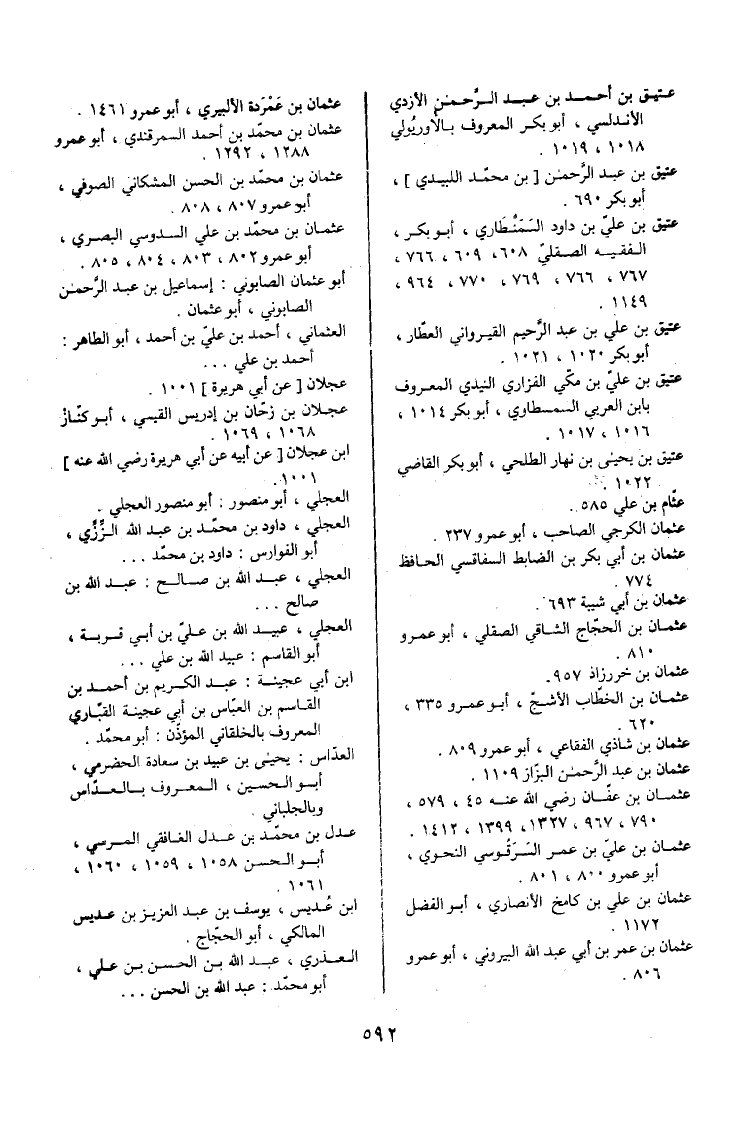 عتيق بن أحمد بن عبد الرَّحمٰن الأزدي
الأندلسي ، أبو بكر المعروف بالأوريُولي
١٠١٨ ، ١٠١٩ .
عتيق بن عبد الرَّحمٰن [ بن محمّد اللبيدي ] ،
أبو بكر ٦٩٠ .
عتيق بن عليّ بن داود السَمَنْطاري ، أبو بكر ،
الفقيه الصقليّ ٦٠٨، ٦٠٩ ، ٧٦٦ ،
٧٦٧ ، ٧٦٦ ، ٧٦٩ ، ٧٧٠ ، ٩٦٤ ،
١١٤٩ .
عتيق بن علي بن عبد الرَّحيم القيرواني العطّار ،
أبو بكر ١٠٢٠ ، ١٠٢١ .
عتيق بن عليّ بن مكّي الفزاري النيدي المعروف
بابن العربي السمسطاوي ، أبو بكر ١٠١٤ ،
١٠١٦ ، ١٠١٧ .
عتيق بن يحيىٰ بن نهار الطلحي ، أبو بكر القاضي
١٠٢٢ .
عثّام بن علي ٥٨٥ .
عثمان الكرجي الصاحب ، أبو عمرو ٢٣٧ .
عثمان بن أبي بكر بن الضابط السفاقسي الحافظ
٧٧٤ .
عثمان بن أبي شيبة ٦٩٣ .
عثمان بن الحجّاج الشاقي الصقلي ، أبو عمرو
٨١٠ .
عثمان بن خررزاذ ٩٥٧ .
عثمان بن الخطّاب الأشجّ ، أبو عمرو ٣٣٥ ،
٦٢٠ .
عثمان بن شاذي الفقاعي ، أبو عمرو ٨٠٩ .
عثمان بن عبد الرَّحمٰن البزّاز ١١٠٩ .
عثمان بن عفّان رضي الله عنه ٤٥ ، ٥٧٩ ،
٧٩٠ ، ٩٦٧ ، ١٣٢٧، ١٣٩٩ ، ١٤١٢ .
عثمان بن عليّ بن عمر السَرَقُوسي النحوي ،
أبو عمرو ٨٠٠ ، ٨٠١ .
عثمان بن علي بن كامخ الأنصاري ، أبو الفضل
١١٧٢ .
عثمان بن عمر بن أبي عبد الله البيروني ، أبو عمرو
٨٠٦ .
عثمان بن عَمْرَدة الألبيري ، أبو عمرو ١٤٦١ .
عثمان بن محمّد بن أحمد السمرقندي ، أبو عمرو
١٢٨٨ ، ١٢٩٢ .
عثمان بن محمّد بن الحسن المشكاني الصوفي ،
أبو عمرو ٨٠٧ ، ٨٠٨ .
عثمان بن محمّد بن علي السدوسي البصري ،
أبو عمرو ٨٠٢ ، ٨٠٣ ، ٨٠٤ ، ٨٠٥ .
أبو عثمان الصابوني : إسماعيل بن عبد الرَّحمٰن
الصابوني ، أبو عثمان .
العثماني ، أحمد بن عليّ بن أحمد ، أبو الطاهر :
أحمد بن علي ...
عجلان [ عن أبي هريرة ] ١٠٠١ .
عجلان بن زحّان بن إدريس القيسي ، أبو كنّازْ
١٠٦٨ ، ١٠٦٩ .
ابن عجلان [ عن أبيه عن أبي هريرة رضي الله عنه ]
١٠٠١.
العجلي ، أبو منصور : أبو منصور العجلي .
العجلي ، داود بن محمّد بن عبد الله الزِّزّي ،
أبو الفوارس : داود بن محمّد ...
العجلي ، عبد الله بن صالح : عبد الله بن
صالح ...
العجلي ، عبيد الله بن عليّ بن أبي قربة ،
أبو القاسم : عبيد الله بن علي ...
ابن أبي عجينة : عبد الكريم بن أحمد بن
القاسم بن العبّاس بن أبي عجينة القبّاري
المعروف بالخلقاني المؤذّن : أبو محمّد .
العدّاس : يحيىٰ بن عبيد بن سعادة الحضرمي ،
أبو الحسين ، المعروف بالعدّاس
وبالجلباني .
عدل بن محمّد بن عدل الغافقي المرسي ،
أبو الحسن ١٠٥٨ ، ١٠٥٩ ، ١٠٦٠ ،
١٠٦١ .
ابن عُديس ، يوسف بن عبد العزيز بن عديس
المالكي ، أبو الحجّاج .
العذري ، عبد الله بن الحسن بن علي ،
أبو محمّد : عبد الله بن الحسن ...
٥٩٢